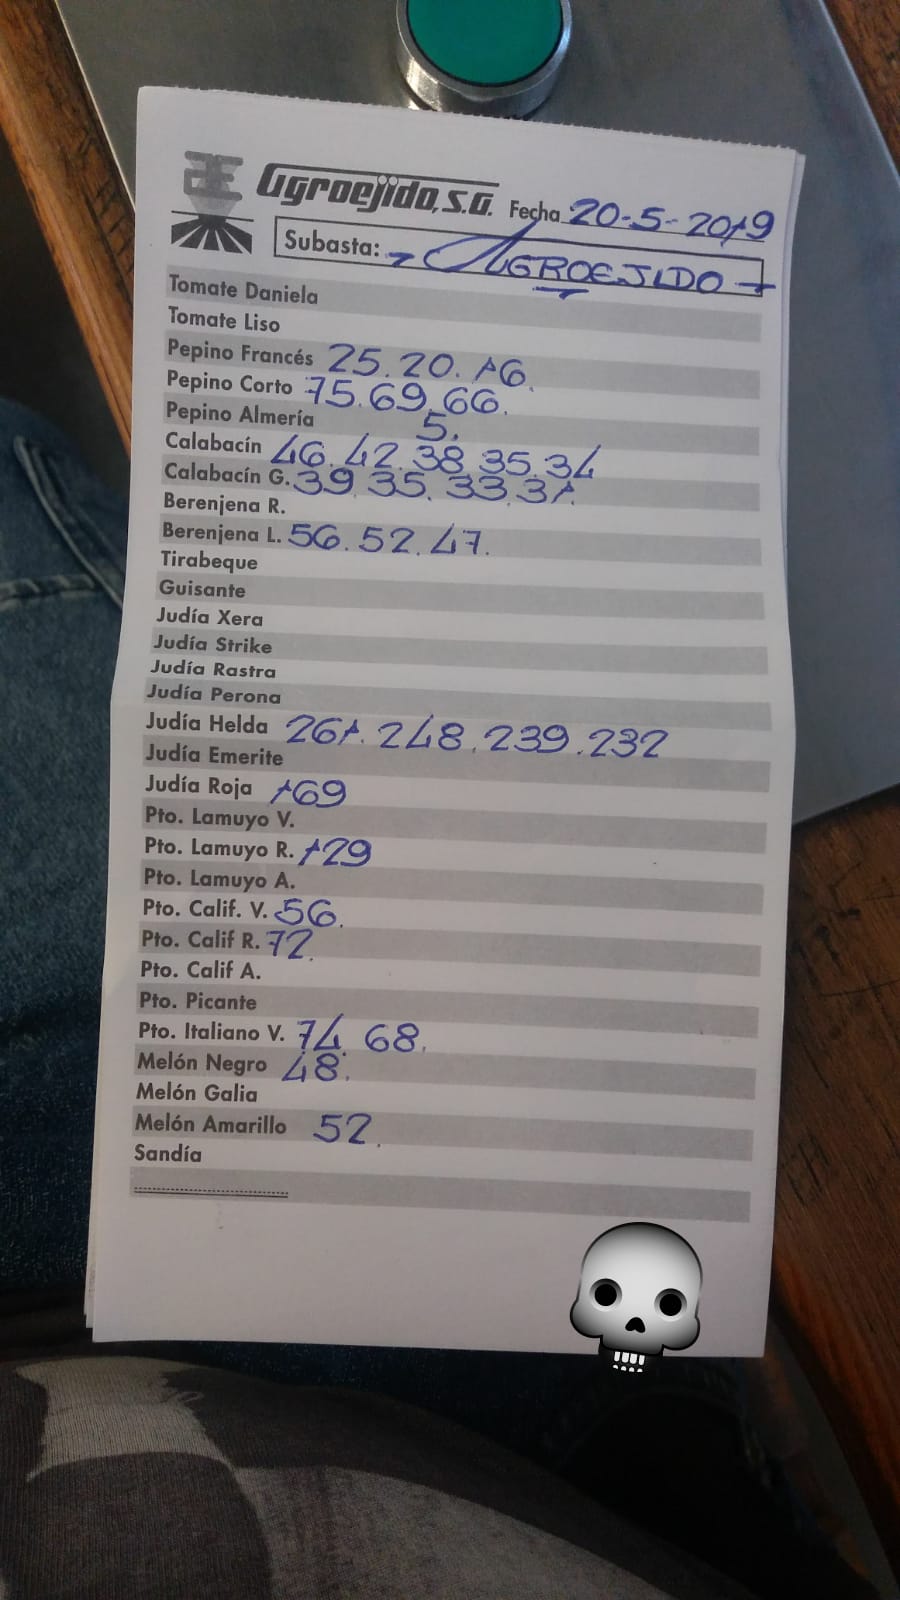 Agroejido, S.A. Fecha 20-5-2019
Subasta: AGROEJIDO
Tomate Daniela
Tomate Liso
Pepino Francés 25. 20. 16.
Pepino Corto 75. 69. 66.
Pepino Almería 5.
Calabacín 46. 42. 38. 35. 34
Calabacín G. 39. 35. 33. 31.
Berenjena R.
Berenjena L. 56. 52. 47.
Tirabeque
Guisante
Judía Xera
Judía Strike
Judía Rastra
Judía Perona
Judía Helda 261. 248. 239. 232
Judía Emerite
Judía Roja 169
Pto. Lamuyo V.
Pto. Lamuyo R. 129
Pto. Lamuyo A.
Pto. Calif. V. 56.
Pto. Calif R. 72.
Pto. Calif A.
Pto. Picante
Pto. Italiano V. 74. 68.
Melón Negro 48.
Melón Galia
Melón Amarillo 52.
Sandía